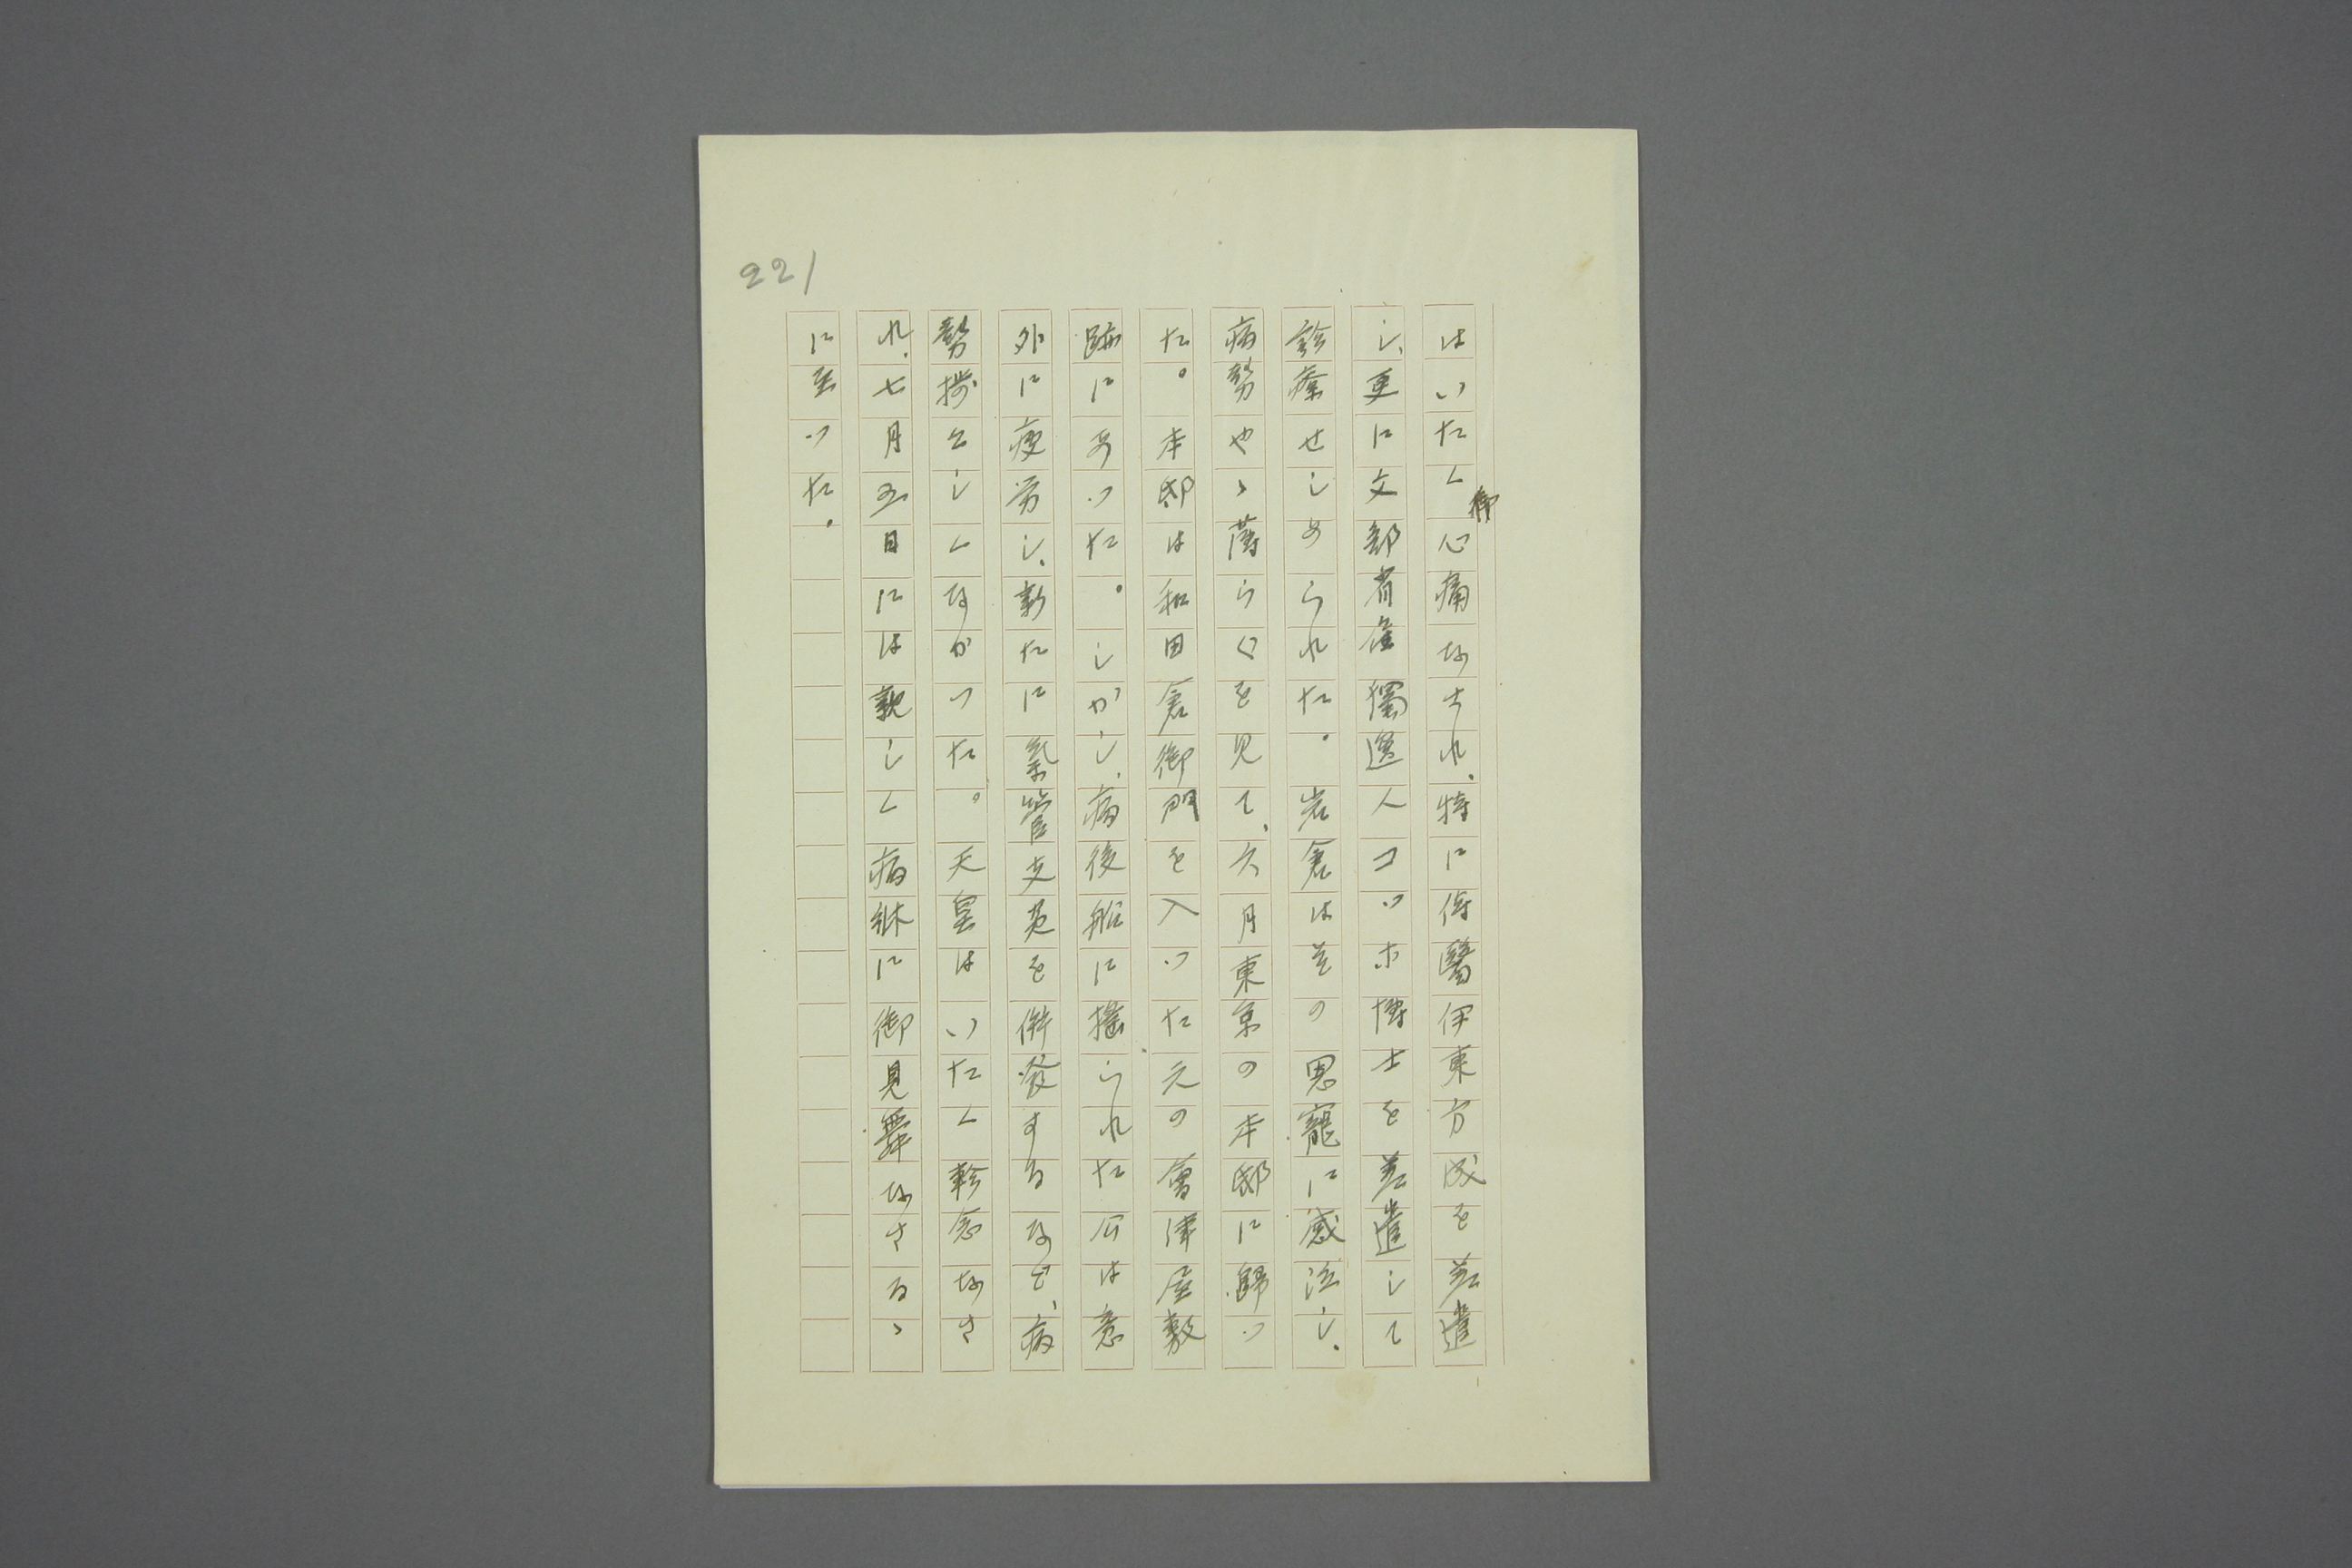 221
はいたく御心痛なされ、特に侍醫伊東方成を差遣
し、更に文部省雇獨逸人コッホ博士を差遣して
診療せしめられた。岩倉は其の恩寵に感泣し、
病勢やゝ薄らぐを見て、六月東京の本邸に歸つ
た。本邸は和田倉御門を入つた元の會津屋敷
跡にあつた。しかし、病後船に搖られた公は意
外に疲労し、新たに氣管支炎を併發するなど、病
勢捗々しくなかつた。天皇はいたく軫念なさ
れ、七月五日には親しく病牀に御見舞なさるゝ
に至つた。